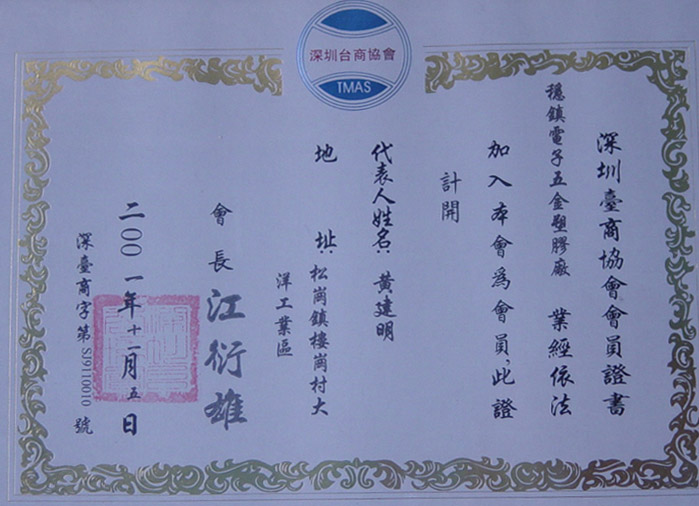 深圳台商協會
TMAS
深圳臺商協會會員證書
穩鎮電子五金塑膠廠 業經依法
加入本會為會員,此證
計開
代表人姓名:黃建明
地址:松崗鎮樓崗村大
洋工業區
會長江衍雄
二00一年十一月五日
深臺商字第SJ9110010號